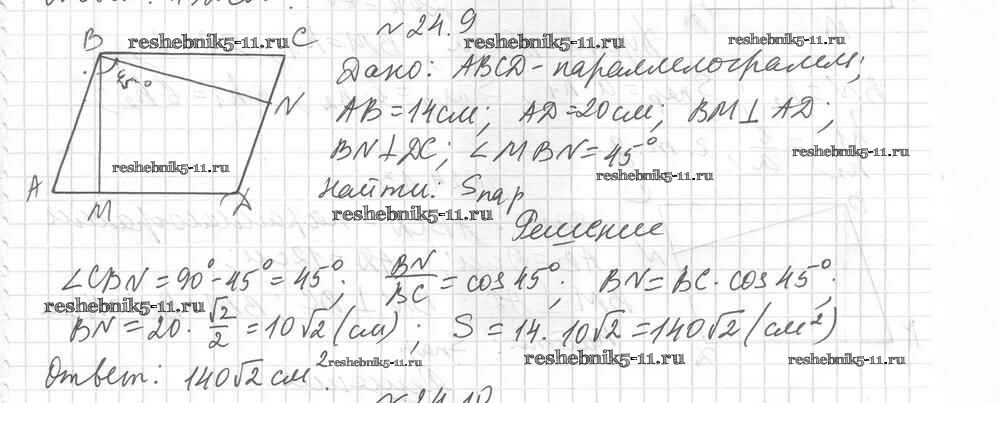 N 24.9
B reshebnik5-11.ru C reshebnik5-11.ru reshebnik5-11.ru
45° Дано: ABCD - параллелограмм;
N AB = 14 см; AD = 20 см; BM ⊥ AD;
BN ⊥ DC; ∠MBN = 45° reshebnik5-11.ru
reshebnik5-11.ru reshebnik5-11.ru
A M D Найти: Sпар
reshebnik5-11.ru
Решение
∠CBN = 90° - 45° = 45°; BN/BC = cos 45°; BN = BC · cos 45°;
reshebnik5-11.ru
BN = 20 · √2/2 = 10√2 (см); S = 14 · 10√2 = 140√2 (см²)
reshebnik5-11.ru reshebnik5-11.ru reshebnik5-11.ru
Ответ: 140√2 см².